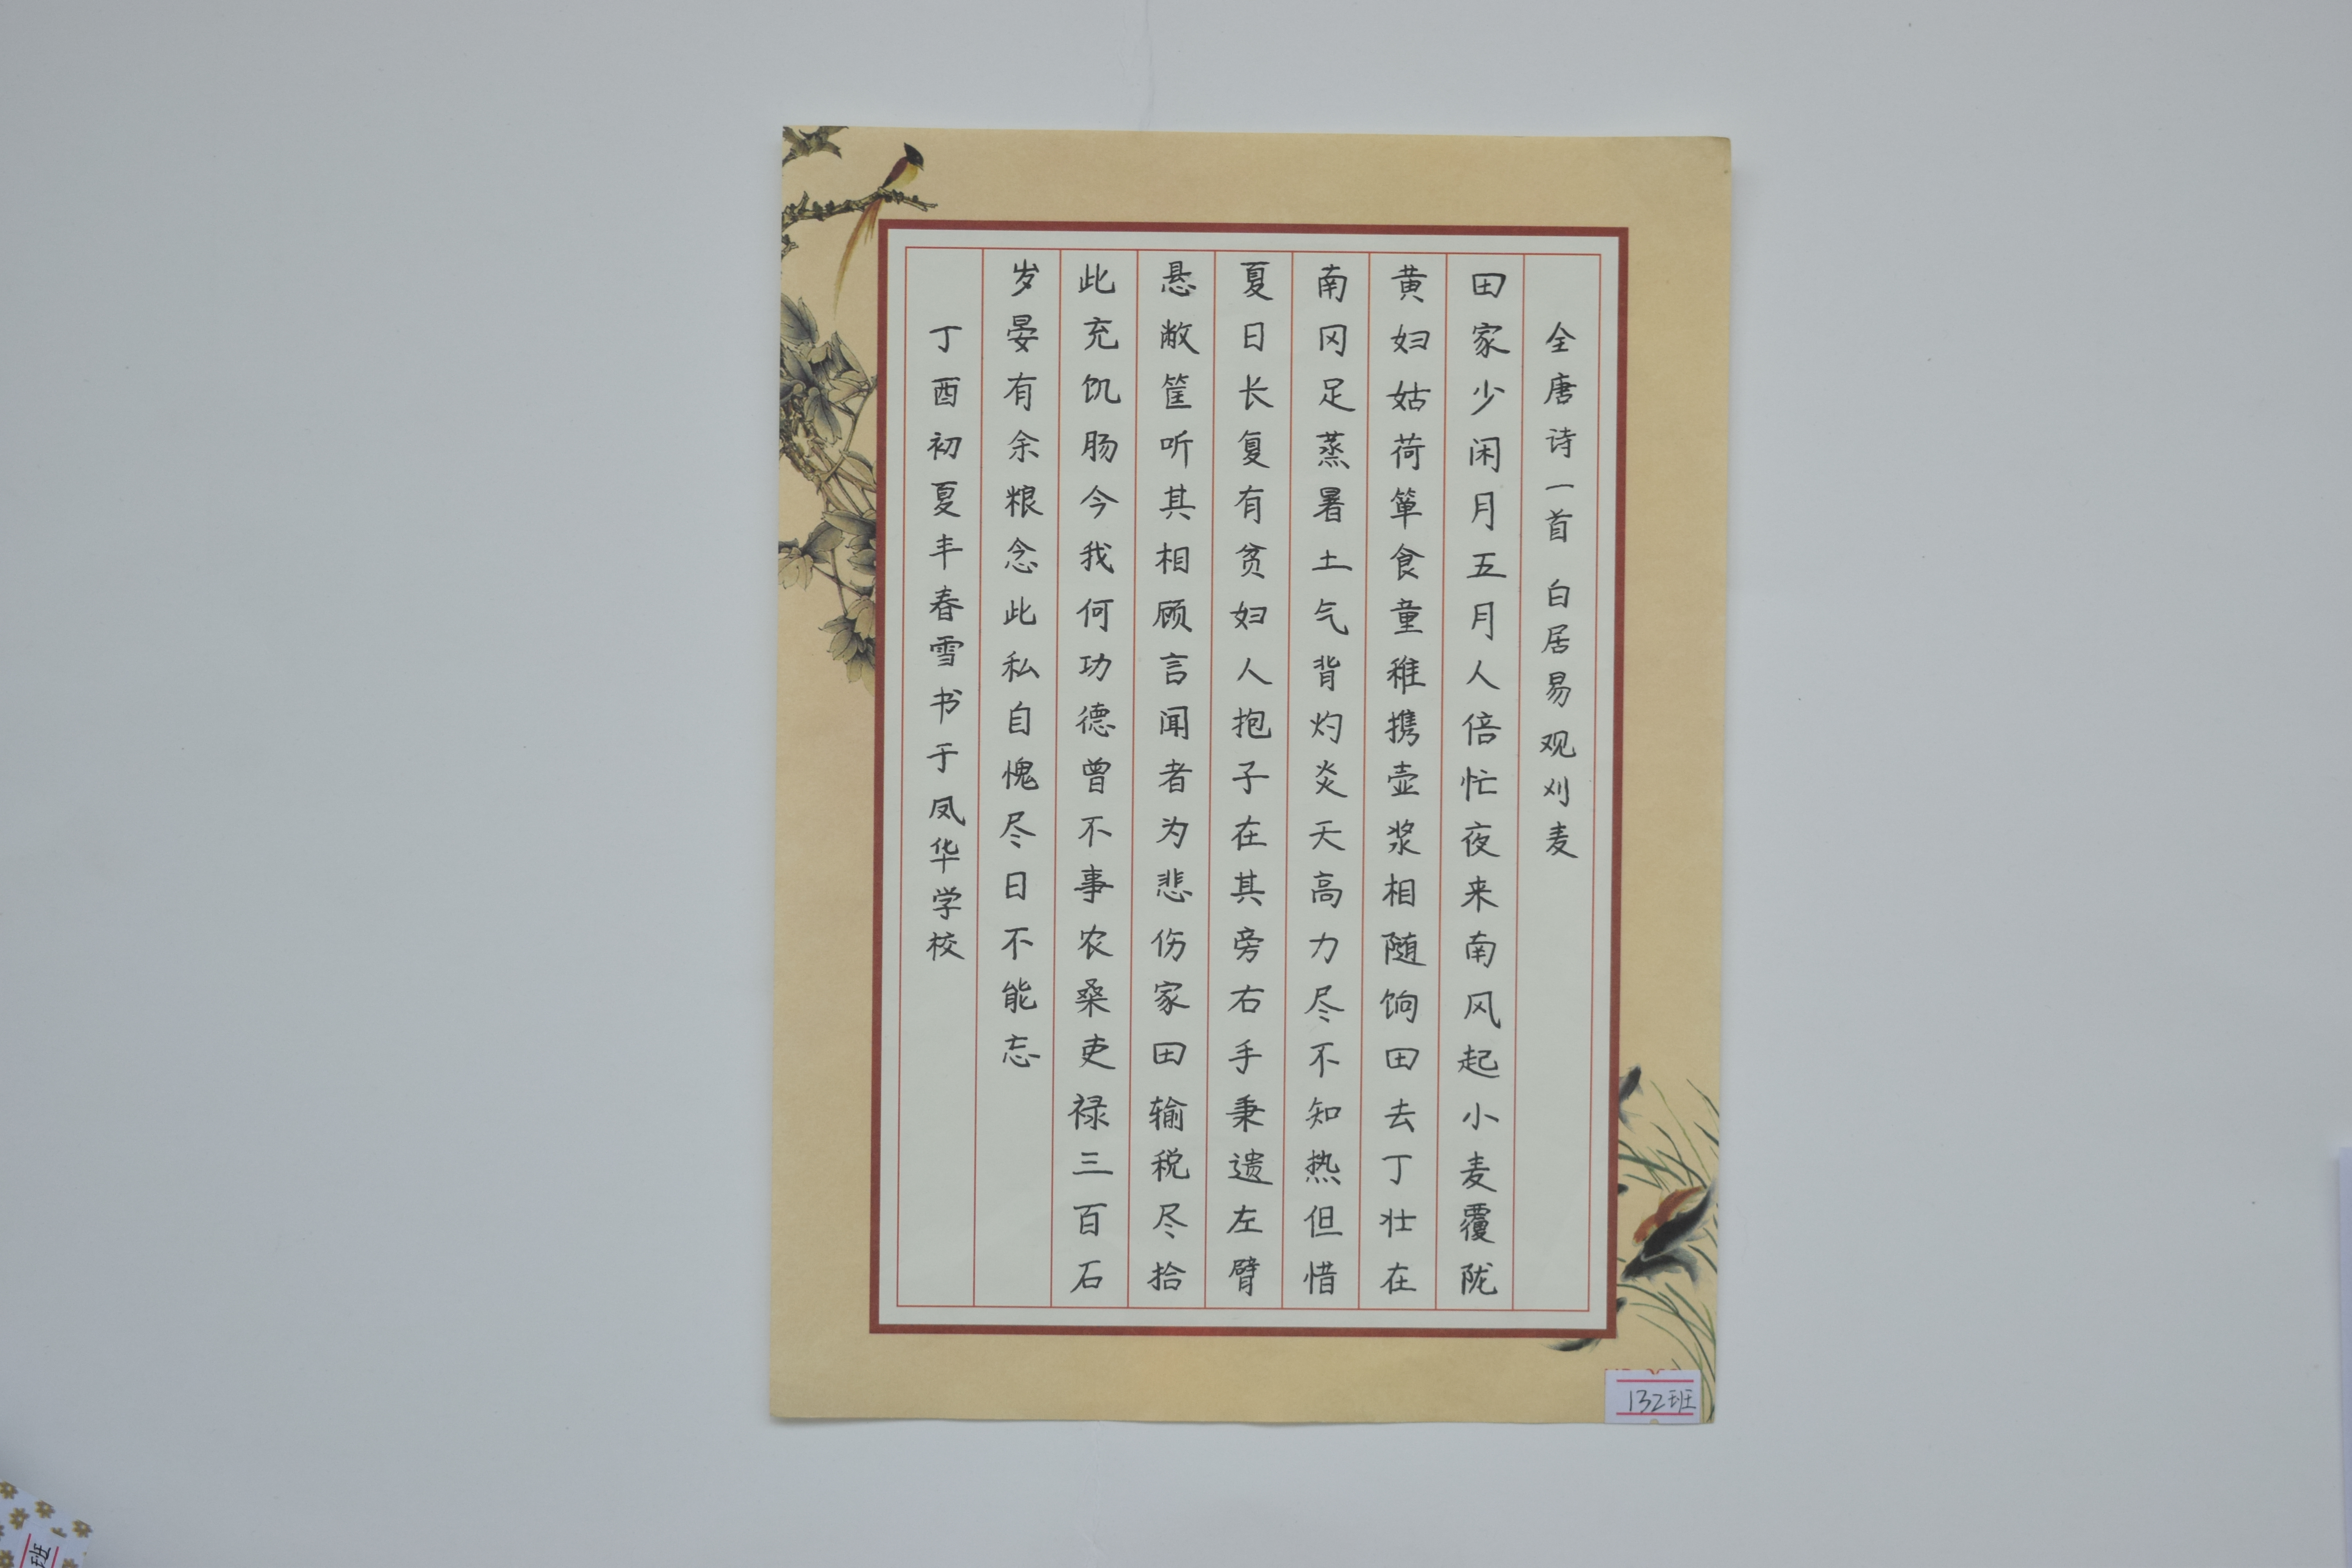 全唐诗一首 白居易 观刈麦
田家少闲月五月人倍忙夜来南风起小麦覆陇
黄妇姑荷箪食童稚携壶浆相随饷田去丁壮在
南冈足蒸暑土气背灼炎天高力尽不知热但惜
夏日长复有贫妇人抱子在其旁右手秉遗左臂
悬敝筐听其相顾言闻者为悲伤家田输税尽拾
此充饥肠今我何功德曾不事农桑吏禄三百石
岁晏有余粮念此私自愧尽日不能忘
丁酉初夏丰春雪书于凤华学校
132班
班